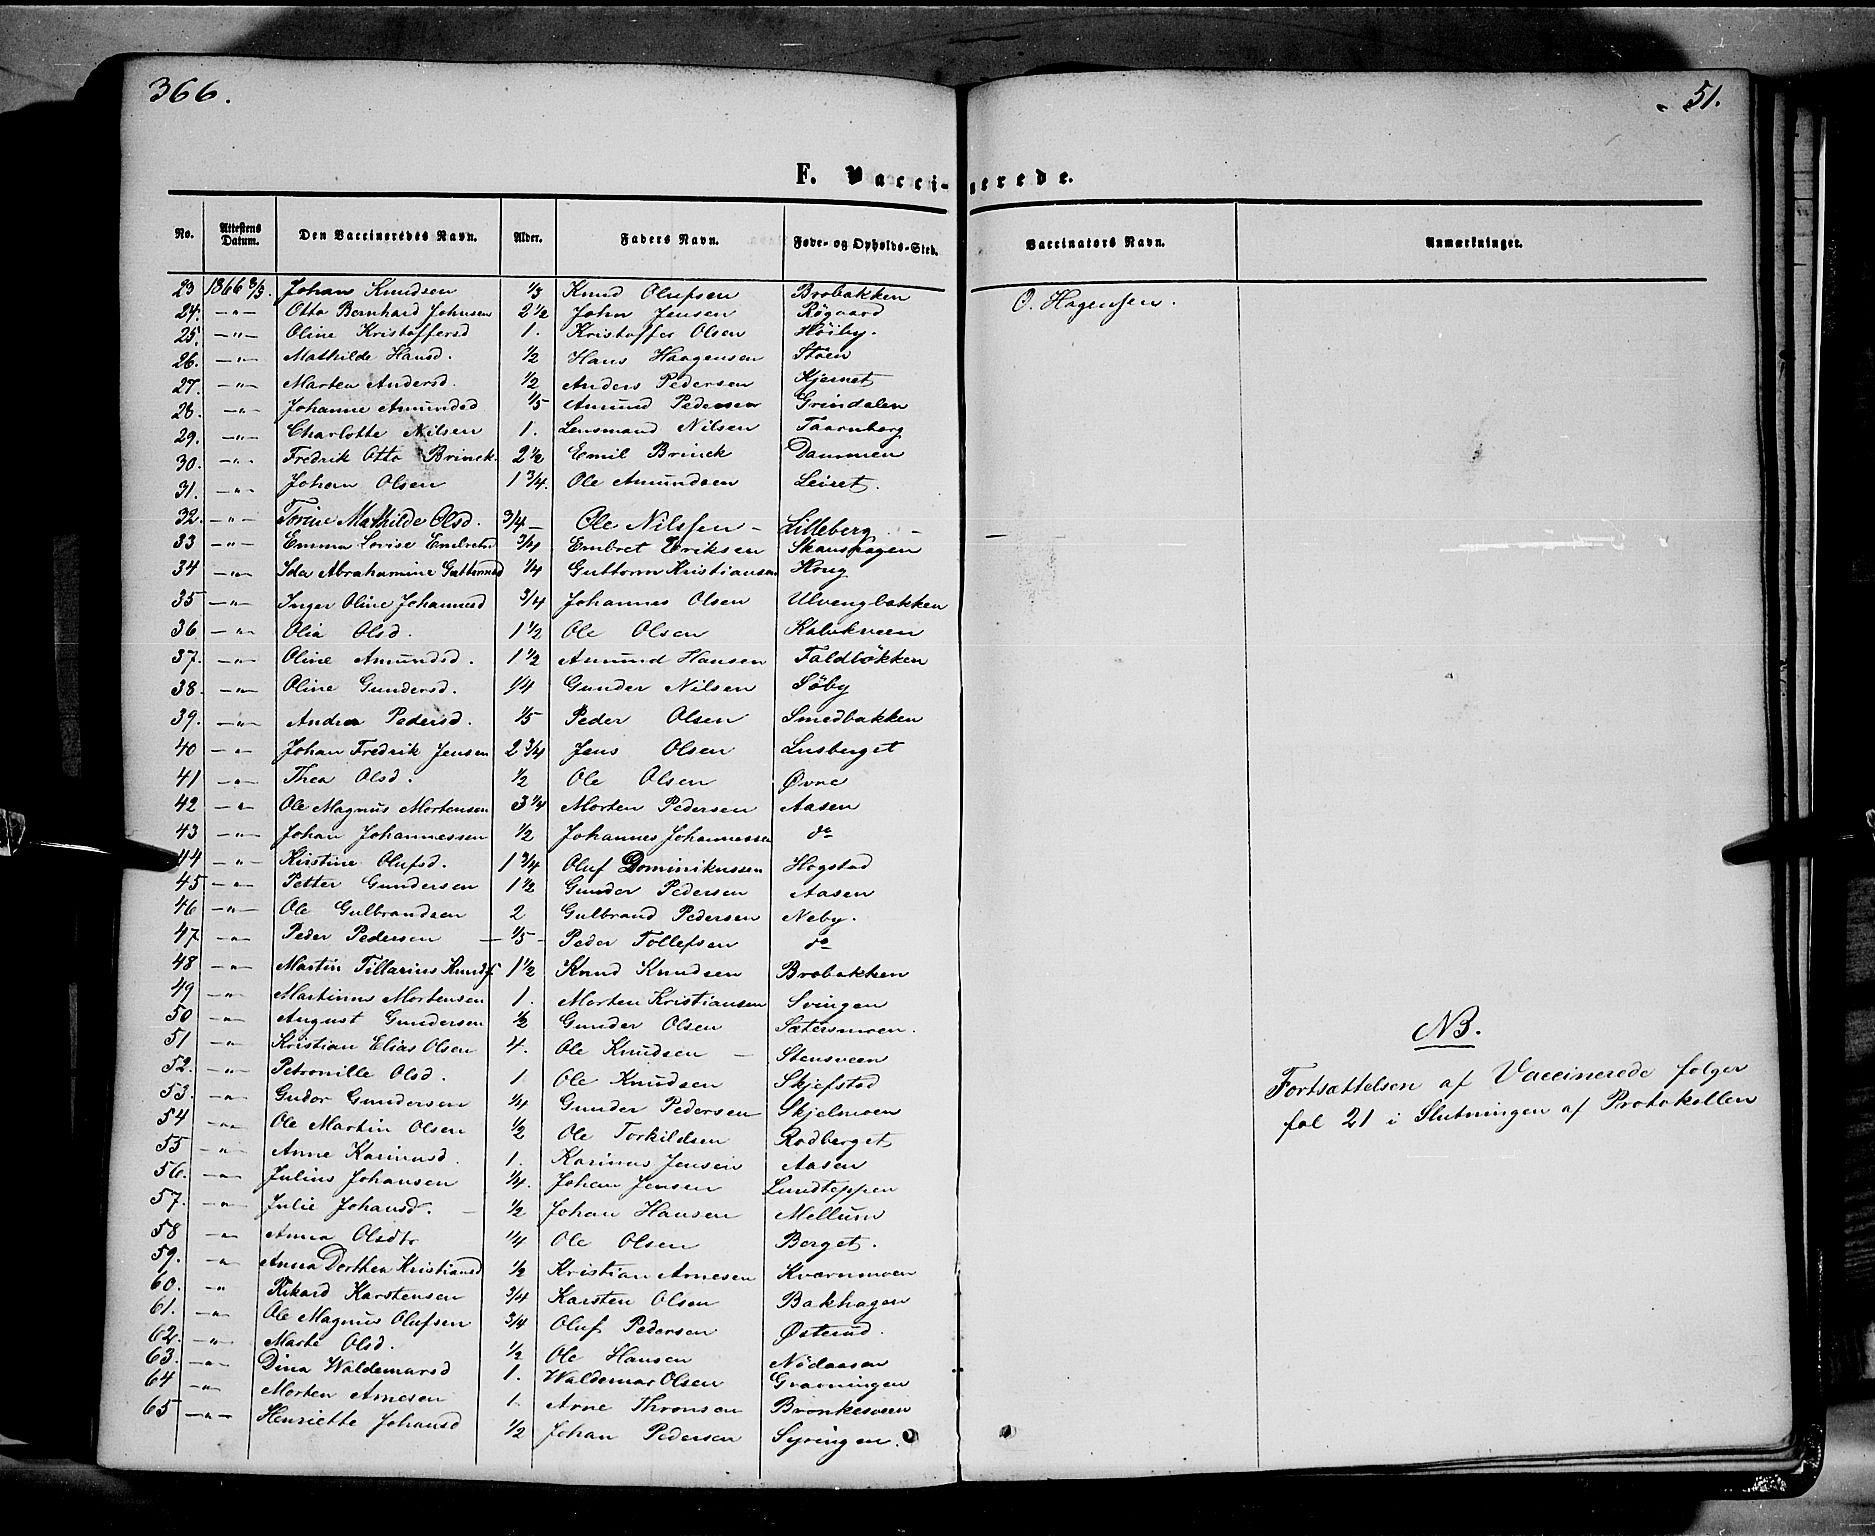 366.
51.
F. Vaccinerede.
No. Attestens Datum. Den Vaccineredes Navn. Alder. Faders Navn. Føde- og Opholds-Sted. Vaccinators Navn. Anmærkninger.
23 1866 8/3. Johan Knudsen 1/3 Knud Olufsen Brobakken O. Hagensen.
24. -"- Otto Bernhard Johnsen 2 1/2 John Jensen Røgaard
25. -"- Oline Kristoffersd 1. Kristoffer Olsen Høiby.
26. -"- Mathilde Hansd. 1/2 Hans Haagensen Støen
27. -"- Marten Andersd. 1/2 Anders Pedersen Kjernet
28. -"- Johanne Amundsd 1/5 Amund Pedersen Grindalen
29. -"- Charlotte Nilsen 1. Lensmand Nilsen Taarnberg
30. -"- Fredrik Otto Brinck. 2 1/2 Emil Brinck Dammen
31. -"- Johan Olsen 1 3/4. Ole Amundsen Leiret.
32. -"- Torine Mathilde Olsd. 3/4 - Ole Nilssen - Lilleberg -
33 -"- Emma Lovise Embretsd 3/4 Embret Eriksen Skanshagen
34 -"- Ida Abrahamine Guttormsd 1/4 Guttorm Kristiansen Houg
35 -"- Inger Oline Johannesd 3/4 Johannes Olsen Ulvengbakken
36 -"- Olia Olsd. 1 1/2 Ole Olsen Kalvkveen
37. -"- Oline Amundsd. 1 1/2 Amund Hansen Faldbökken
38. -"- Oline Gundersd. 1/4 Gunder Nilsen Søby
39. -"- Andrea Pedersd. 1/5 Peder Olsen Smedbakken
40 -"- Johan Fredrik Jensen 2 3/4 Jens Olsen Lusberget
41 -"- Thea Olsd. 1/2 Ole Olsen Øvne
42 -"- Ole Magnus Mortensen 3 1/4 Morten Pedersen Aasen
43 -"- Johan Johannessen 1/2 Johannes Johannessen do
44 -"- Kirstine Olufsd. 1 3/4 Oluf Dominikussen Hogstad
45 -"- Petter Gundersen 1 1/2 Gunder Pedersen Aasen
46 -"- Ole Gulbrandsen 2 Gulbrand Pedersen Neby.
47 -"- Peder Pedersen - 1/5 - Peder Tollefsen do
48 -"- Martin Tillarius Knudsf 1 1/2 Knud Knudsen Brobakken
49 -"- Martinus Mortensen 1. Morten Kristiansen Svingen
50 -"- August Gundersen 1/2 Gunder Olsen Sætersmoen.
51 -"- Kristian Elias Olsen 4. Ole Knudsen - Stensveen
52. -"- Petronille Olsd. 1. Ole Knudsen Skjefstad
53. -"- Gudor Gundersen 1/4 Gunder Pedersen Skjelmoen
54 -"- Ole Martin Olsen 1/2 Ole Torkildsen Rodberget
55 -"- Anne Karinusd. 1. Karinus Jensen Aasen
56. -"- Julius Johansen 1/4. Johan Jensen Lundteppen
57. -"- Julie Johansd. - 1/2 Johan Hansen Mellum
58 -"- Anna Olsdtr 1/4 Ole Olsen Berget.
59. -"- Anna Dorthea Kristiansd 1/2 Kristian Arnesen Kværnmoen
60. " Rikard Karstensen 3/4 Karsten Olsen Bakhagen
61. -"- Ole Magnus Olufsen 3/4 Oluf Pedersen Østerud.
62. -"- Marte Olsd. 1/2 Ole Hansen Nödaasen
63. -"- Dina Waldemarsd 1. Waldemar Olsen Gravningen
64 -"- Morten Arnesen 1. Arne Thronsen Bronkesveen
65 -"- Henriette Johansd 1/2 Johan Pedersen Syringen.
NB.
Fortsættelsen af Vaccinerede følger
fol 21 i Slutningen af Protokollen